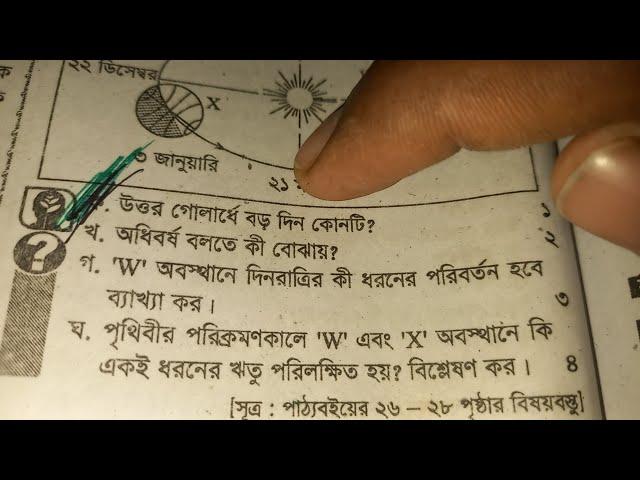 ২২ ডিসেম্বর
X
৩ জানুয়ারি
২১
ক. উত্তর গোলার্ধে বড় দিন কোনটি? ১
খ. অধিবর্ষ বলতে কী বোঝায়? ২
গ. 'W' অবস্থানে দিনরাত্রির কী ধরনের পরিবর্তন হবে
ব্যাখ্যা কর। ৩
ঘ. পৃথিবীর পরিক্রমণকালে 'W' এবং 'X' অবস্থানে কি
একই ধরনের ঋতু পরিলক্ষিত হয়? বিশ্লেষণ কর। 8
[সূত্র : পাঠ্যবইয়ের ২৬ – ২৮ পৃষ্ঠার বিষয়বস্তু]